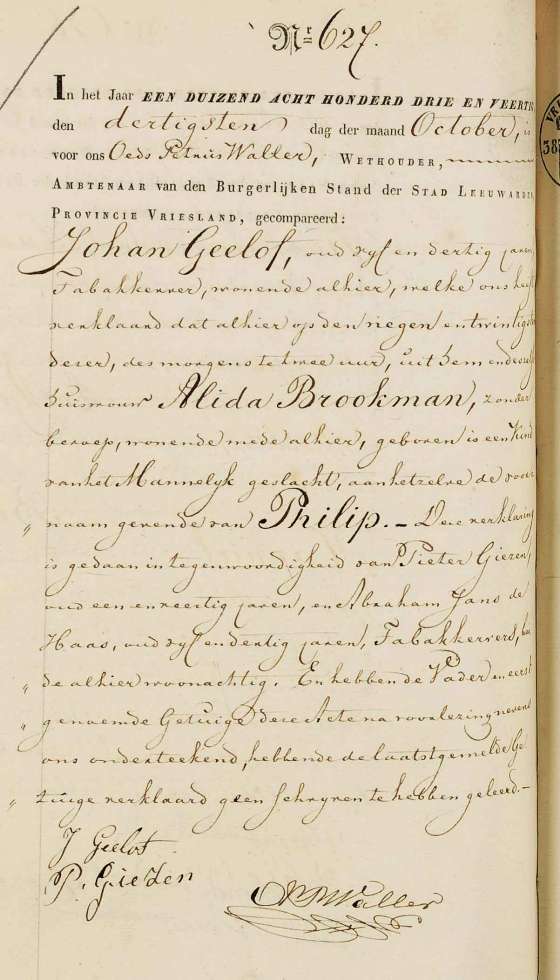 Nr 627.
In het Jaar EEN DUIZEND ACHT HONDERD DRIE EN VEERTI
den dertigsten dag der maand October, is
voor ons Oeds Petrus Waller, WETHOUDER,
AMBTENAAR van den Burgerlijken Stand der STAD LEEUWARDEN
PROVINCIE VRIESLAND, gecompareerd:
Johan Geelof, oud vyf en dertig jaren,
Tabakkerver, wonende alhier, welke ons heeft
verklaard dat alhier op den negen en twintigste
dezer, des morgens te twee uur, uit hem en deszelfs
huisvrouw Alida Brookman, zonder
beroep, wonende mede alhier, geboren is een Kind
van het Mannelyk geslacht, aan hetzelve de voor
" naam gevende van Philip. – Deze verklaring
is gedaan in tegenwoordigheid van Pieter Giezen,
oud een en veertig jaren, en Abraham Jans de
Haas, oud vyf en dertig jaren, Tabakkervers, bei
" de alhier woonachtig. En hebben de Vader en eerst
" genoemde Getuige deze Acte na voorlezing nevens
ons onderteekend, hebbende de laatstgemelde Ge
" tuige verklaard geen Schryven te hebben geleerd. –
J Geelof
P. Giezen
OP Waller